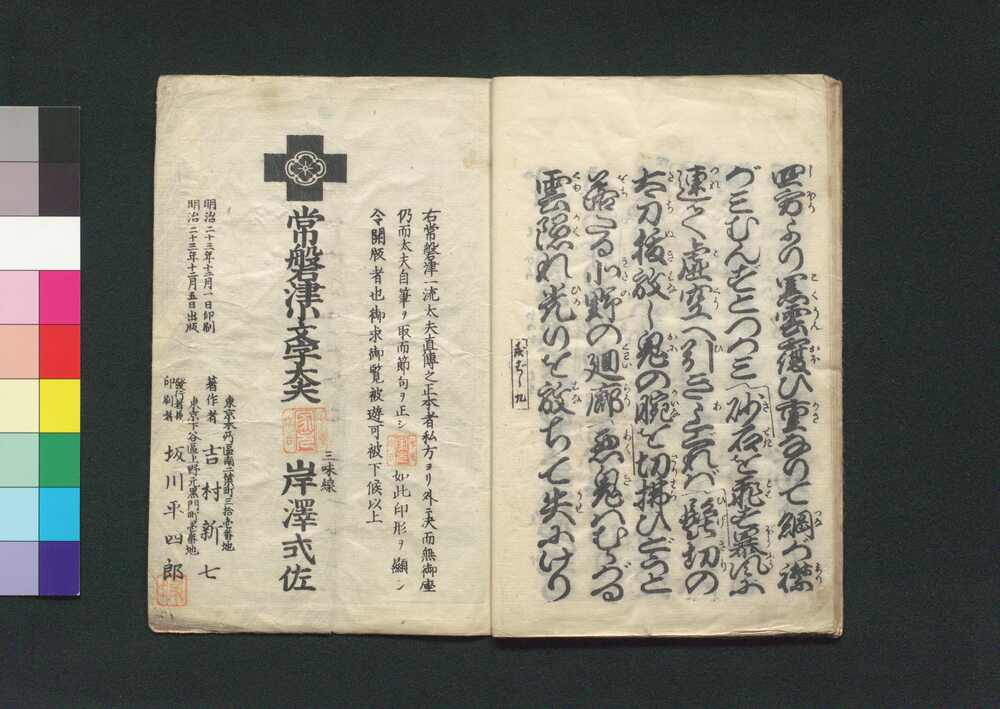 四方より黒雲覆ひ重なりて綱が襟
がみむんずとつつみ砂石を飛す暴風に
連て虚空へ引き上れば髭切の
太刀抜放し鬼の腕を切拂ひどつと
落たる北野の廻廊悪鬼はむらがる
雲隠れ光りを放ちて失にけり
右常磐津一流太夫直傳之正本者私方ヨリ外ニ决而無御座
仍而太夫自筆ヲ取而節句ヲ正シ如此印形ヲ顯シ
令開版者也御求御覧被遊可被下候以上
常磐津小文字太夫
三味線
岸澤式佐
明治二十三年十二月一日印刷
明治二十三年十二月五日出版
東京本所區南二葉町三拾壱番地
著作者 吉村新七
東京下谷區上野元黒門町壱番地
發行者兼
印刷者
坂川平四郎